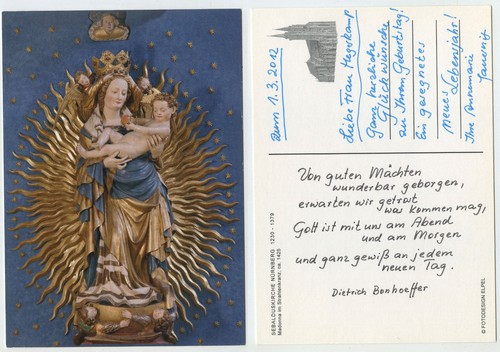 zum 1.3.2012
Liebe Frau Hegekamp
Ganz herzliche
Glückwünsche
zu Ihrem Geburtstag!
Ein gesegnetes
neues Lebensjahr!
Ihre Annemarie
Von guten Mächten
wunderbar geborgen,
erwarten wir getrost
was kommen mag,
Gott ist mit uns am Abend
und am Morgen
und ganz gewiß an jedem
neuen Tag.
Dietrich Bonhoeffer
SEBALDUSKIRCHE NÜRNBERG 1230 - 1379
Madonna im Strahlenkranz, ca. 1425
© FOTODESIGN ELPEL